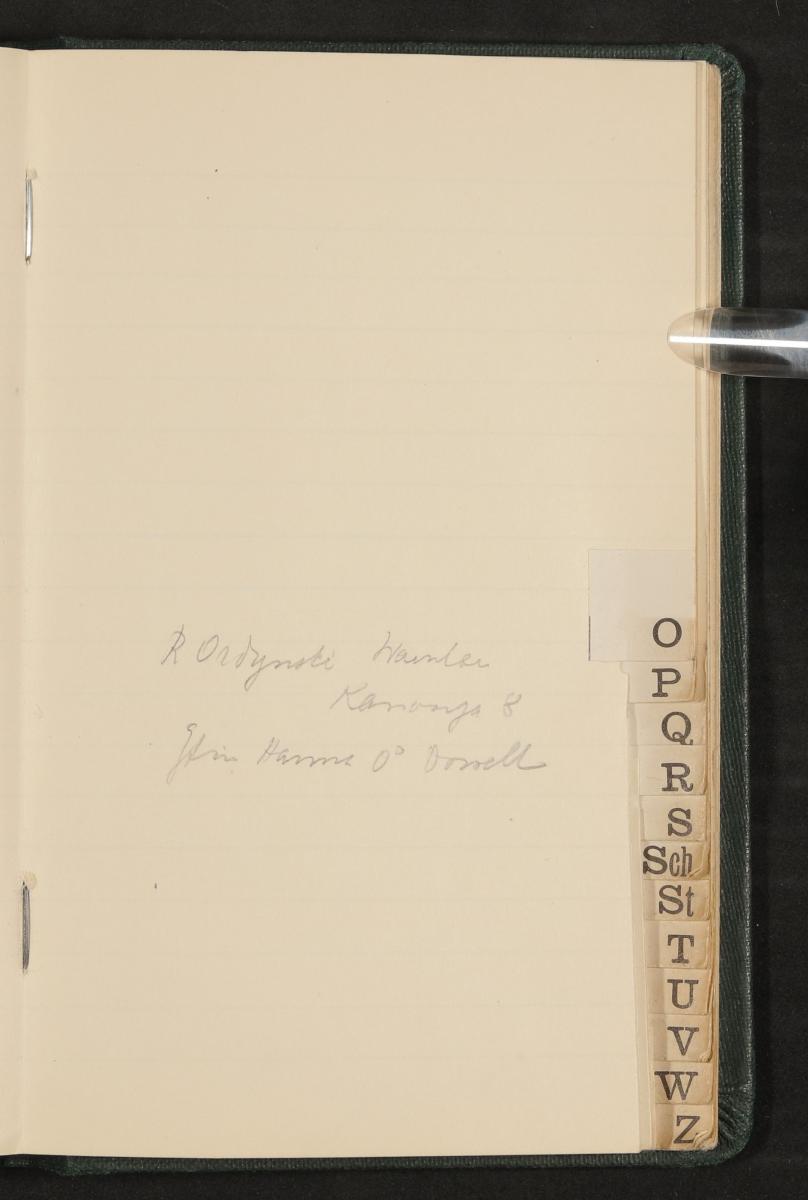 R Ordynski Warschau
Kanonja 8
Gfin Hanna O'Donell
O
P
Q
R
S
Sch
St
T
U
V
W
Z